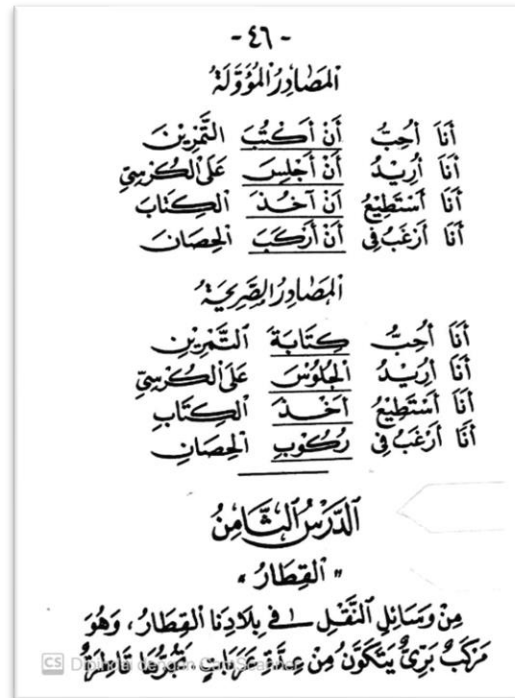 - ٤٦ -
اَلْمَصَادِرُ الْمُؤَوَّلَةُ
أَنَا أُحِبُّ أَنْ أَكْتُبَ التَّمْرِيْنَ
أَنَا أُرِيْدُ أَنْ أَجْلِسَ عَلَى الْكُرْسِيِّ
أَنَا أَسْتَطِيْعُ أَنْ آخُذَ الْكِتَابَ
أَنَا أَرْغَبُ فِى أَنْ أَرْكَبَ الْحِصَانَ
اَلْمَصَادِرُ الصَّرِيْحَةُ
أَنَا أُحِبُّ كِتَابَةَ التَّمْرِيْنِ
أَنَا أُرِيْدُ الْجُلُوْسَ عَلَى الْكُرْسِيِّ
أَنَا أَسْتَطِيْعُ أَخْذَ الْكِتَابِ
أَنَا أَرْغَبُ فِى رُكُوْبِ الْحِصَانِ
اَلدَّرْسُ الثَّامِنُ
" اَلْقِطَارُ "
مِنْ وَسَائِلِ النَّقْلِ فِى بِلَادِنَا الْقِطَارُ ، وَهُوَ
مَرْكَبٌ بَرِّيٌّ يَتَكَوَّنُ مِنْ عِدَّةِ عَرَبَاتٍ تَجُرُّهَا قَاطِرَةٌ
CS Dipindai dengan CamScanner